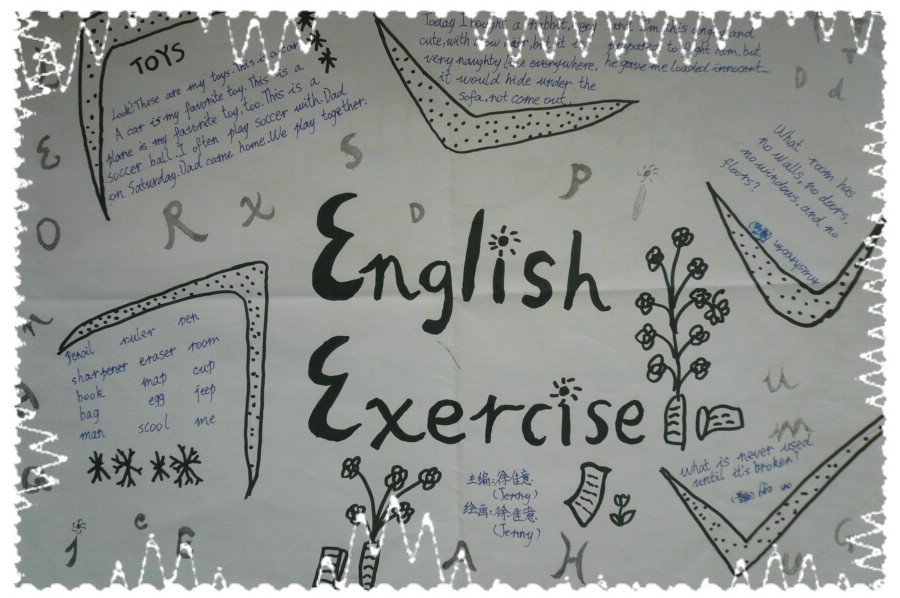 TOYS
Look! These are my toys. This is a car.
A car is my favorite toy. This is a
plane is my favorite toy, too. This is a
soccer ball. I often play soccer with Dad
on Saturday. Dad come home. We play together.
Today I bought a rabbit, very
cute, with snow hair, but it is
very naughty like everywhere,
it would hide under the
sofa, not come out
and I'm this angry and
prepared to fight him, but
he gave me loaded innocent
What room has
no walls, no doors,
no windows, and no
floors?
English
Exercise
pencil ruler pen
sharpener eraser room
book map cup
bag egg jeep
man scool me
what is never used
until it's broken?
主编:徐佳意
(Jenny)
绘画:徐佳意
(Jenny)
E
S
D
P
O
R
X
D
d
T
n
u
m
J
e
A
H